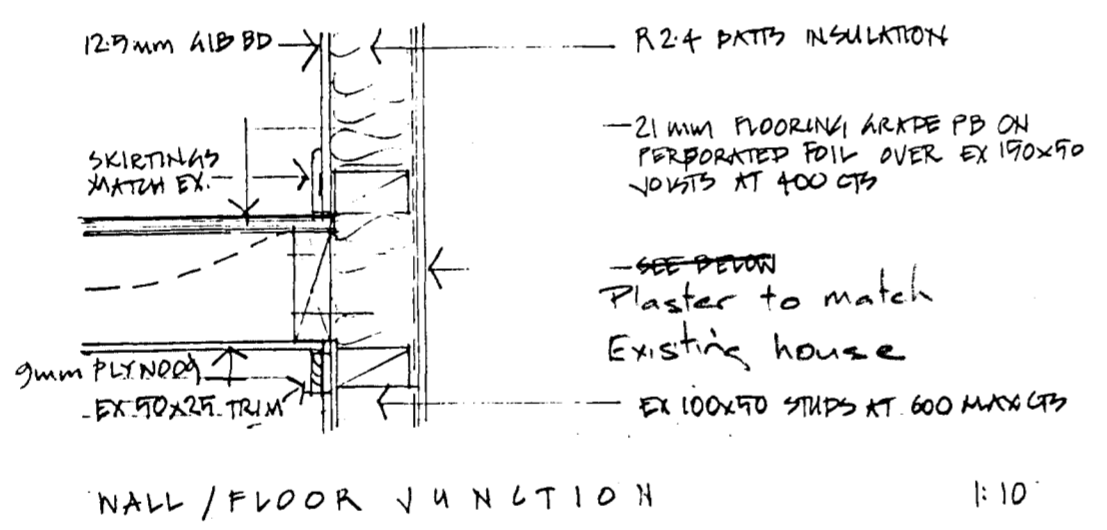 12.5mm GIB BD
R2.4 BATTS INSULATION
21mm FLOORING GRADE PB ON
PERFORATED FOIL OVER EX 150x50
JOISTS AT 400 CTS
SKIRTINGS
MATCH EX.
SEE BELOW
Plaster to match
Existing house
9mm PLYWOOD
EX 50x25 TRIM
EX 100x50 STUDS AT 600 MAX CTS
WALL / FLOOR JUNCTION
1:10